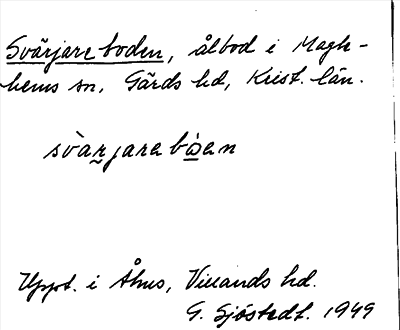 Svärjareboden, ålbod i Magle-
hems sn, Gärds hd, Krist. län.
svàr̰jarebò̲en
Uppt. i Åhus, Villands hd.
G. Sjöstedt. 1949